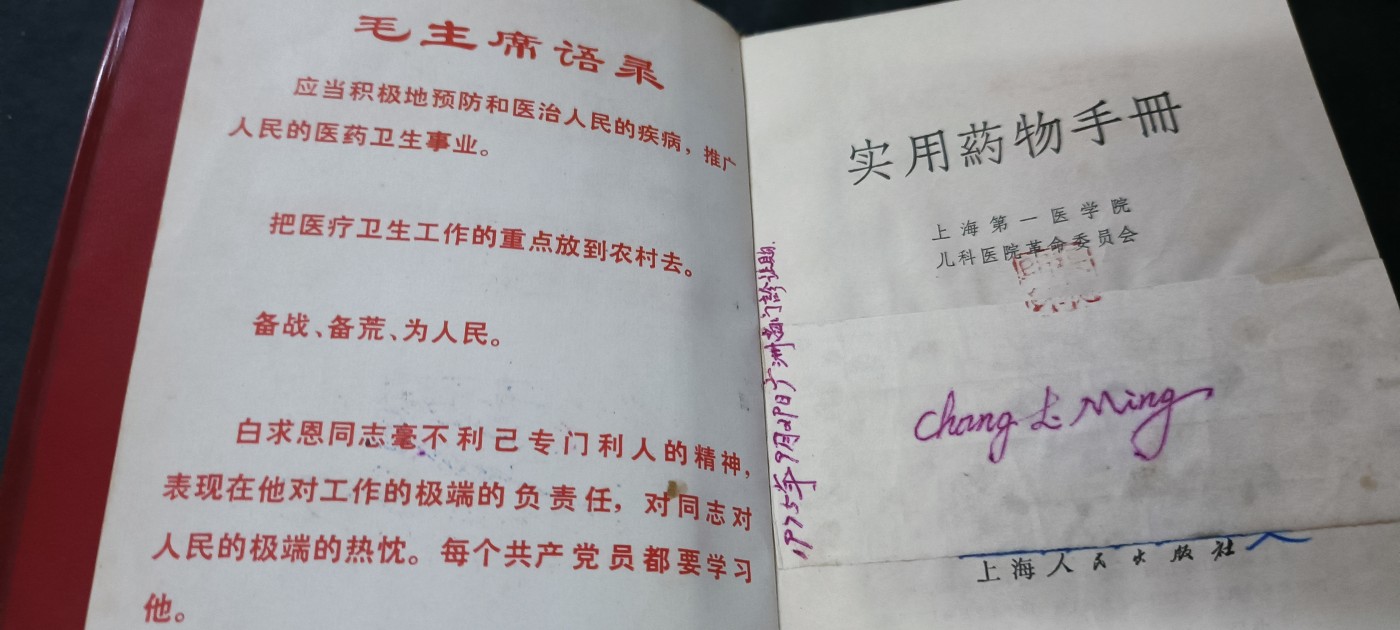 毛主席语录
应当积极地预防和医治人民的疾病，推广
人民的医药卫生事业。
把医疗卫生工作的重点放到农村去。
备战、备荒、为人民。
白求恩同志毫不利己专门利人的精神，
表现在他对工作的极端的负责任，对同志对
人民的极端的热忱。每个共产党员都要学习
他。
实用药物手册
上海第一医学院
儿科医院革命委员会
1975年9月29日广州
Ming
上海人民出版社